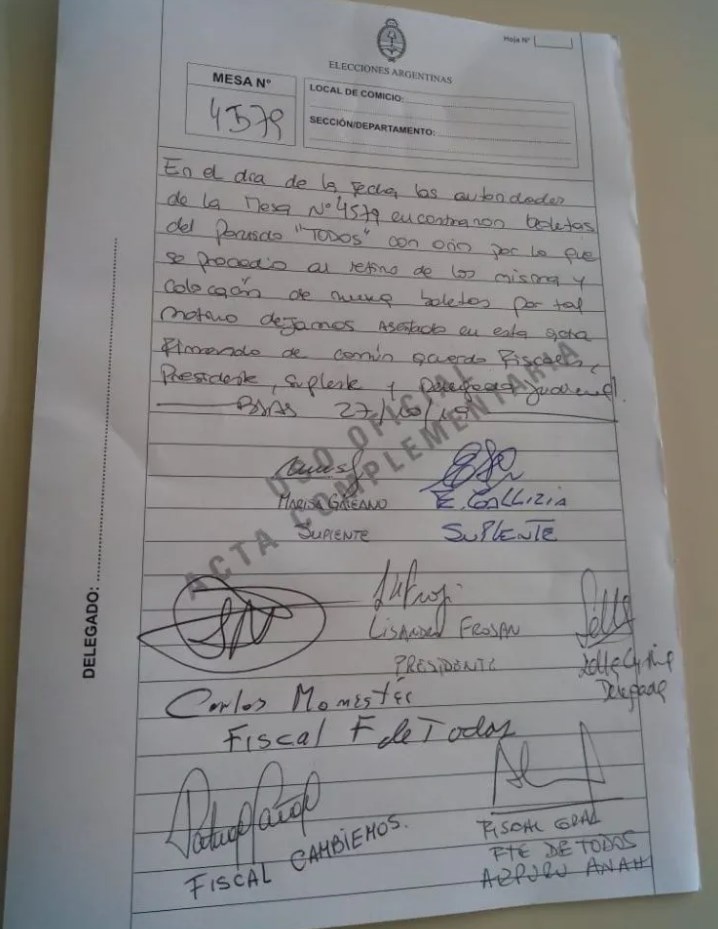 Hoja Nº
ELECCIONES ARGENTINAS
MESA Nº
4579
LOCAL DE COMICIO:
SECCIÓN/DEPARTAMENTO:
En el dia de la fecha las autoridades
de la Mesa Nº 4579 encontraron boletas
del partido "TODOS" con por lo que
se procedio al retiro de los misma y
colocación de nueva boletas por tal
motivo dejamos asentado en esta acta
firmando de común acuerdo Fiscales,
Presidente, Suplente y Delegada Judicial.
BsAs 27/10/19
USO OFICIAL
ACTA COMPLEMENTARIA
MARISA GALEANO E. GALLIZIA
SUPLENTE SUPLENTE
LISANDRO FROSAN
PRESIDENTE
Delegada
Carlos Monestés
Fiscal F de Todos
FISCAL CAMBIEMOS.
FISCAL GRAL
FTE DE TODOS
AZPURU ANAH
DELEGADO: